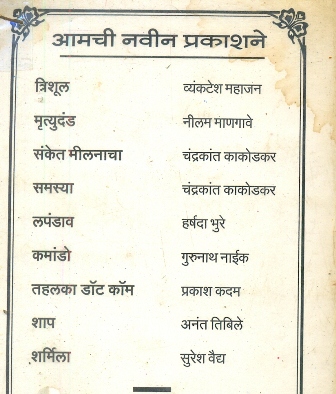 आमची नवीन प्रकाशने
त्रिशूल व्यंकटेश महाजन
मृत्युदंड नीलम माणगावे
संकेत मीलनाचा चंद्रकांत काकोडकर
समस्या चंद्रकांत काकोडकर
लपंडाव हर्षदा भुरे
कमांडो गुरुनाथ नाईक
तहलका डॉट कॉम प्रकाश कदम
शाप अनंत तिबिले
शर्मिला सुरेश वैद्य